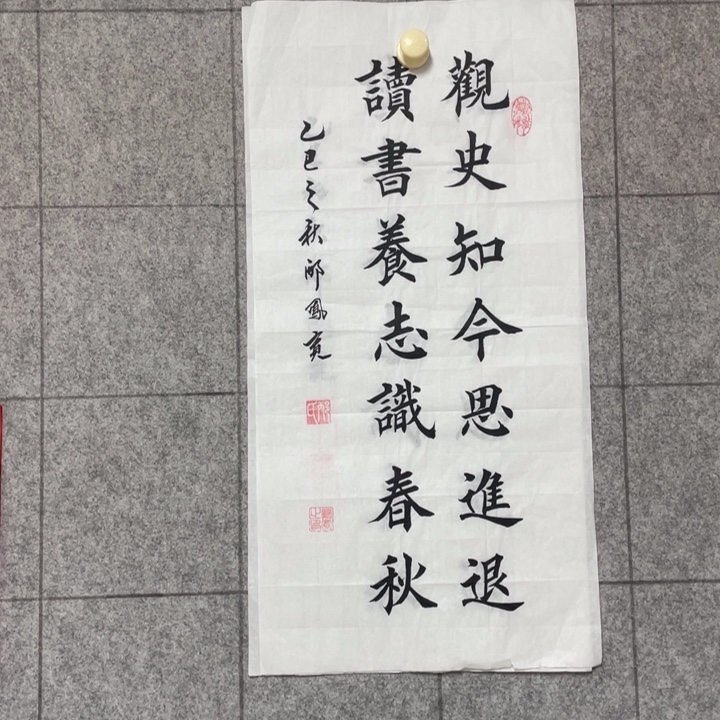 觀史知今思進退
讀書養志識春秋
乙巳之秋邴鳳亮